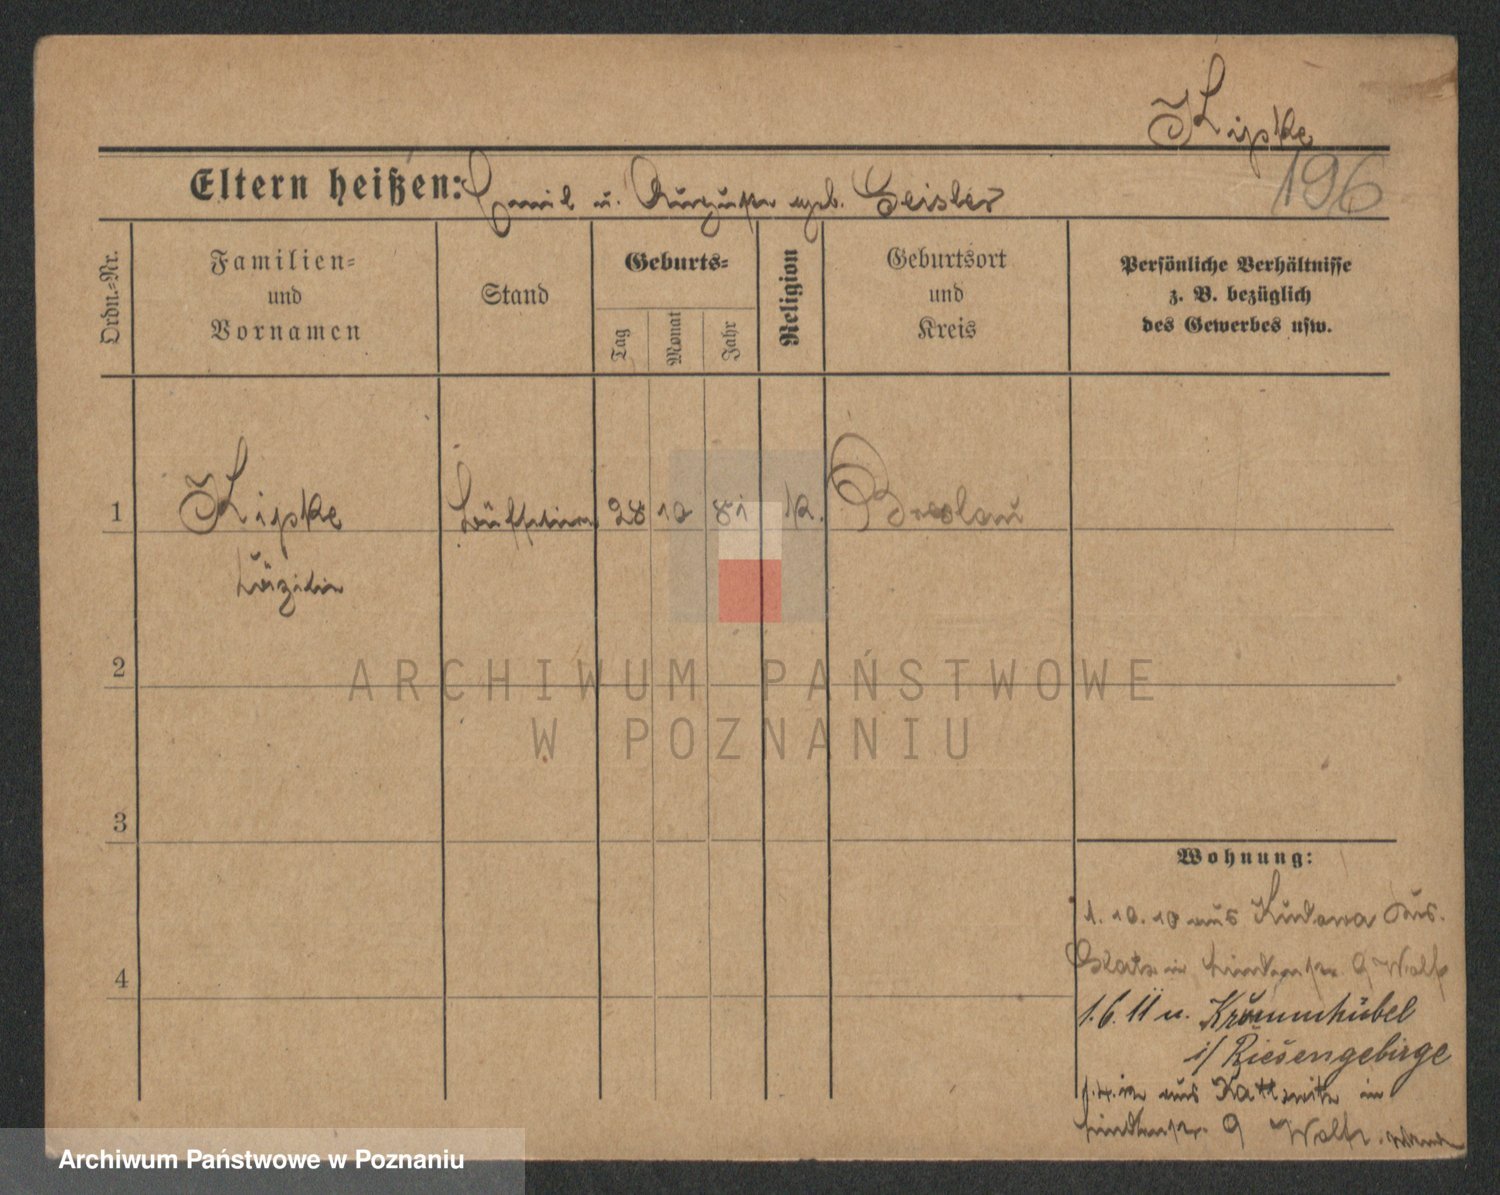 Lipke
196
Eltern heißen: Emil u. Auguste geb. Geisler
Ordn.-Nr.
Familien=
und
Vornamen
Stand
Geburts=
Tag
Monat
Jahr
Religion
Geburtsort
und
Kreis
Persönliche Verhältnisse
z. B. bezüglich
des Gewerbes usw.
1
Lipke
28 10 81 k. Breslau
2
3
4
Wohnung:
1. 10. 10 aus Kudowa
Glatz in Lindenstr. 9 Wolff
1.6.11 n. Krummhübel
i/ Riesengebirge
aus Kattowitz in
Lindenstr. 9 Wolff
ARCHIWUM PAŃSTWOWE
W POZNANIU
Archiwum Państwowe w Poznaniu